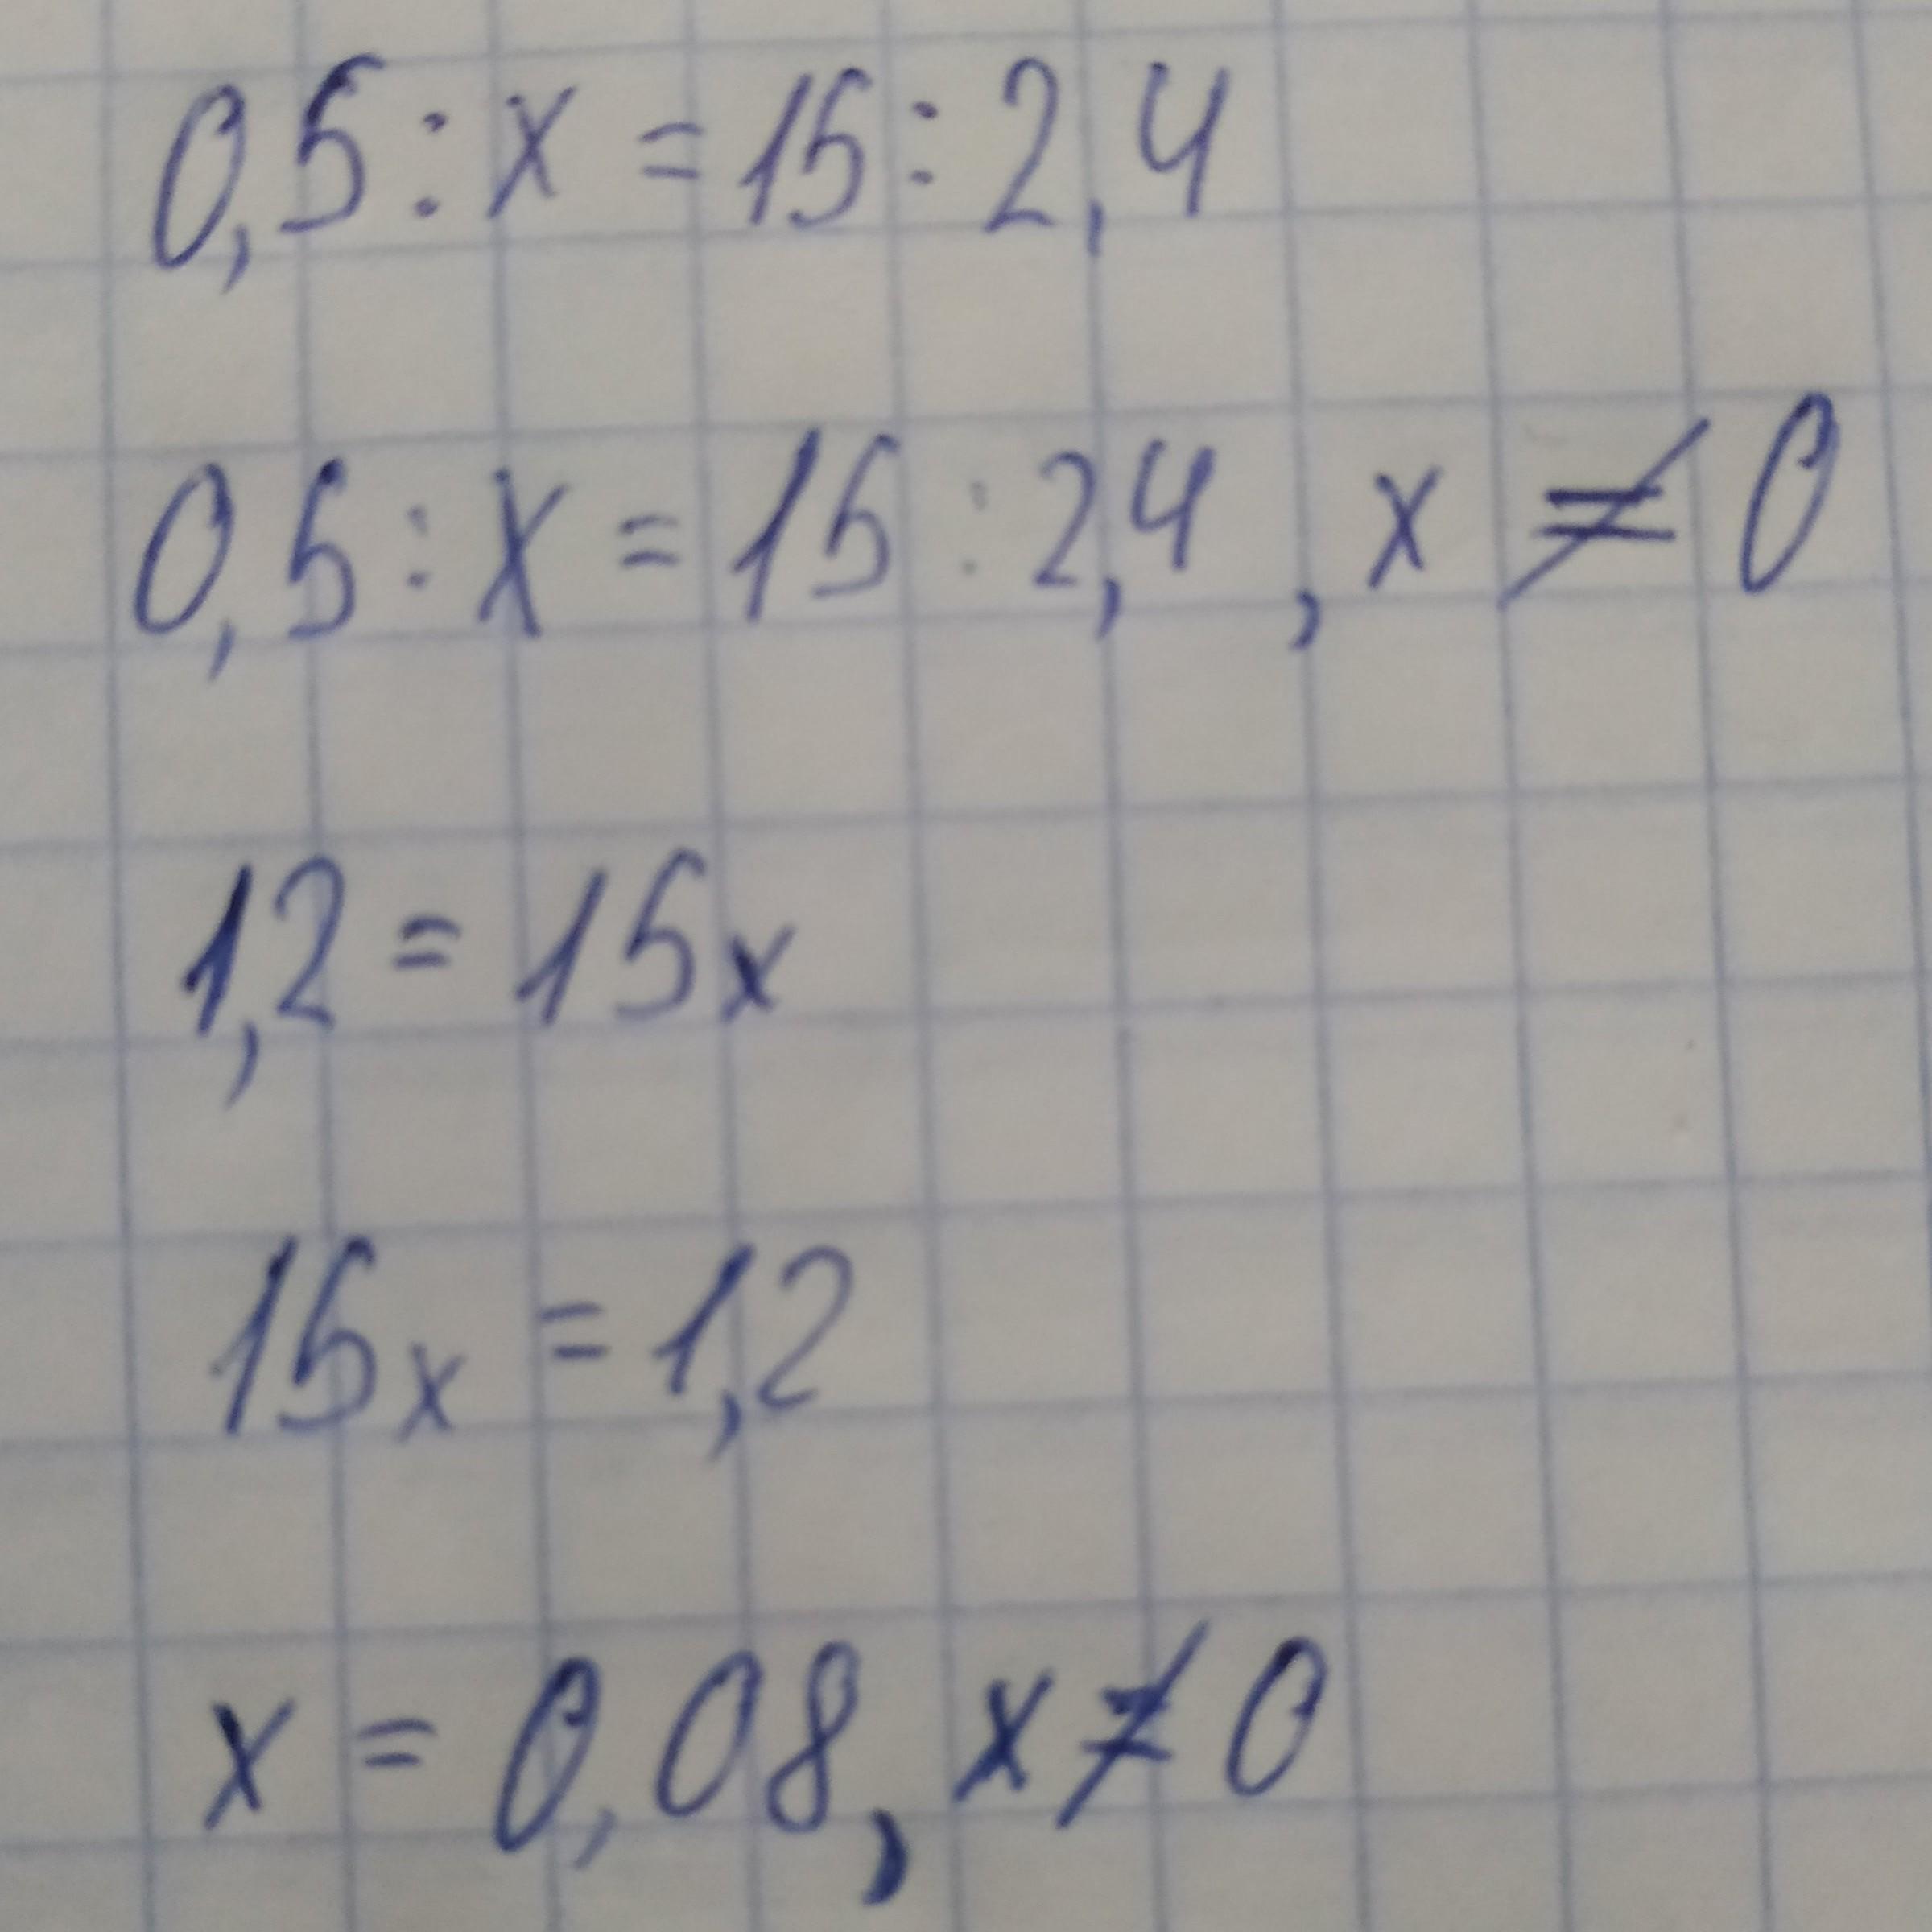 0,5 : x = 15 : 2,4
0,5 : x = 15 : 2,4 , x ≠ 0
1,2 = 15x
15x = 1,2
x = 0,08, x ≠ 0